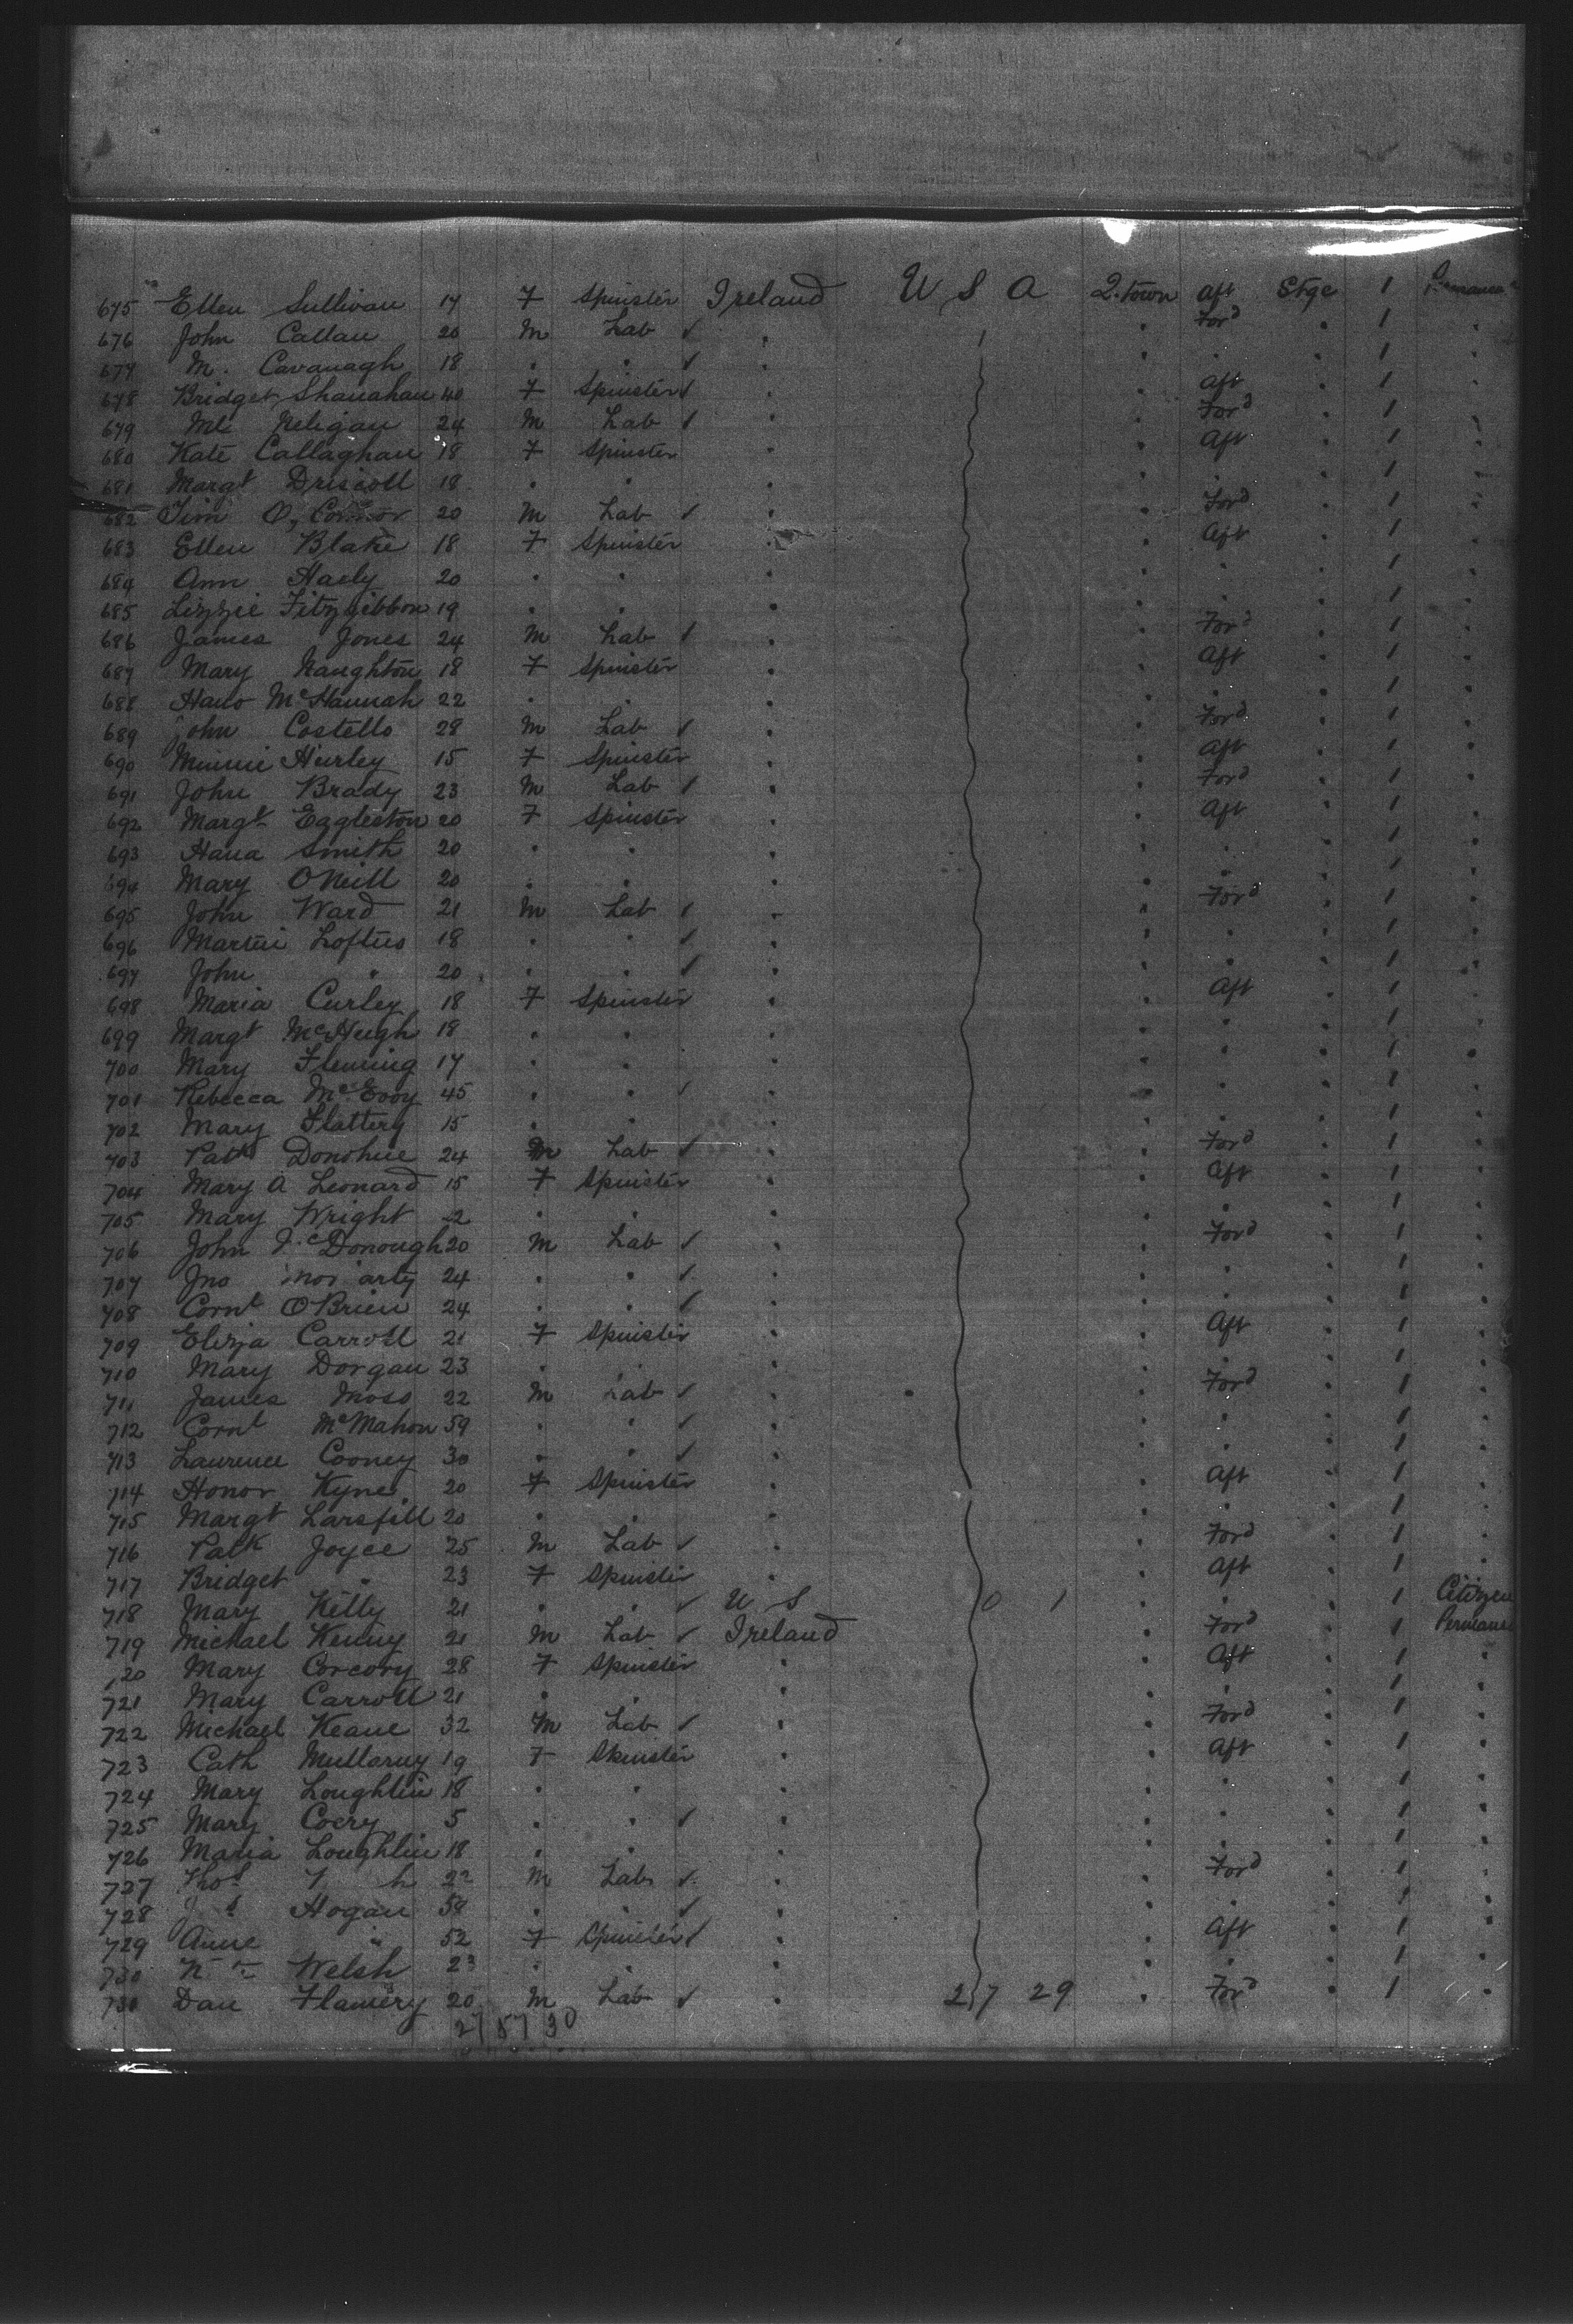 675 Ellen Sullivan 17 F Spinster Ireland U S A Q.town aft Stge 1
676 John Callan 20 M Lab ✓ " " Ford " 1 "
677 M. Cavanagh 18 " " ✓ " " " " 1 "
678 Bridget Shanahan 40 F Spinster ✓ " " aft " 1 "
679 Ml Neligan 24 M Lab ✓ " " Ford " 1 "
680 Kate Callaghan 18 F Spinster " " aft " 1 "
681 Margt Driscoll 18 " " " " " " 1 "
682 Tim O, Connor 20 M Lab ✓ " " Ford " 1 "
683 Ellen Blake 18 F Spinster " " aft " 1 "
684 Ann Haely 20 " " " " " " 1 "
685 Lizzie Fitzgibbon 19 " " " " " " 1 "
686 James Jones 24 M Lab ✓ " " Ford " 1 "
687 Mary Naughton 18 F Spinster " " aft " 1 "
688 Hano McHannah 22 " " " " " " 1 "
689 John Costello 28 M Lab ✓ " " Ford " 1 "
690 Minnie Hurley 15 F Spinster " " aft " 1 "
691 John Brady 23 M Lab ✓ " " Ford " 1 "
692 Margt Eggleston 20 F Spinster " " aft " 1 "
693 Hana Smith 20 " " " " " " 1 "
694 Mary ONeill 20 " " " " " " 1 "
695 John Ward 21 M Lab ✓ " " Ford " 1 "
696 Martin Loftus 18 " " ✓ " " " " 1 "
697 John " 20 " " ✓ " " " " 1 "
698 Maria Curley 18 F Spinster " " aft " 1 "
699 Margt McHugh 18 " " " " " " 1 "
700 Mary Fleming 17 " " " " " " 1 "
701 Rebecca McEvoy 45 " " ✓ " " " " 1 "
702 Mary Slattery 15 " " " " " " 1 "
703 Patk Donohue 24 M Lab ✓ " " Ford " 1 "
704 Mary A Leonard 15 F Spinster " " aft " 1 "
705 Mary Wright " " " " " " 1 "
706 John Donough 20 M Lab ✓ " " Ford " 1 "
707 Jno 24 " " ✓ " " " " 1 "
708 Cornl OBrien 24 " " ✓ " " " " 1 "
709 Eliza Carroll 21 F Spinster " " aft " 1 "
710 Mary Dorgan 23 " " " " " " 1 "
711 James Moss 22 M Lab ✓ " " Ford " 1 "
712 Cornl McMahon 59 " " ✓ " " " " 1 "
713 Laurence Cooney 30 " " ✓ " " " " 1 "
714 Honor Kyne 20 F Spinster " " aft " 1 "
715 Margt Larsfill 20 " " " " " " 1 "
716 Patk Joyce 25 M Lab ✓ " " Ford " 1 "
717 Bridget " 23 F Spinster " " aft " 1 "
718 Mary Kelly 21 " " ✓ U S 0 1 " " " 1 Citizen
719 Michael Kenny 21 M Lab ✓ Ireland " Ford " 1
20 Mary Corcory 28 F Spinster " " aft " 1 "
721 Mary Carroll 21 " " " " " " 1 "
722 Michael Keane 32 M Lab ✓ " " Ford " 1 "
723 Cath Mullarny 19 F Spinster " " aft " 1 "
724 Mary Loughlin 18 " " " " " " 1 "
725 Mary Coery 5 " " ✓ " " " " 1 "
726 Maria Loughlin 18 " " " " " " 1 "
727 Thos M Lab ✓ " " Ford " 1 "
728 Hogan 58 " " ✓ " " " " 1 "
729 Anne " 52 F Spinster ✓ " " aft " 1 "
730 Welsh 23 " " " " " " 1 "
Dan Flannery 20 M Lab ✓ " 27 29 " Ford " 1 "
27 57 30